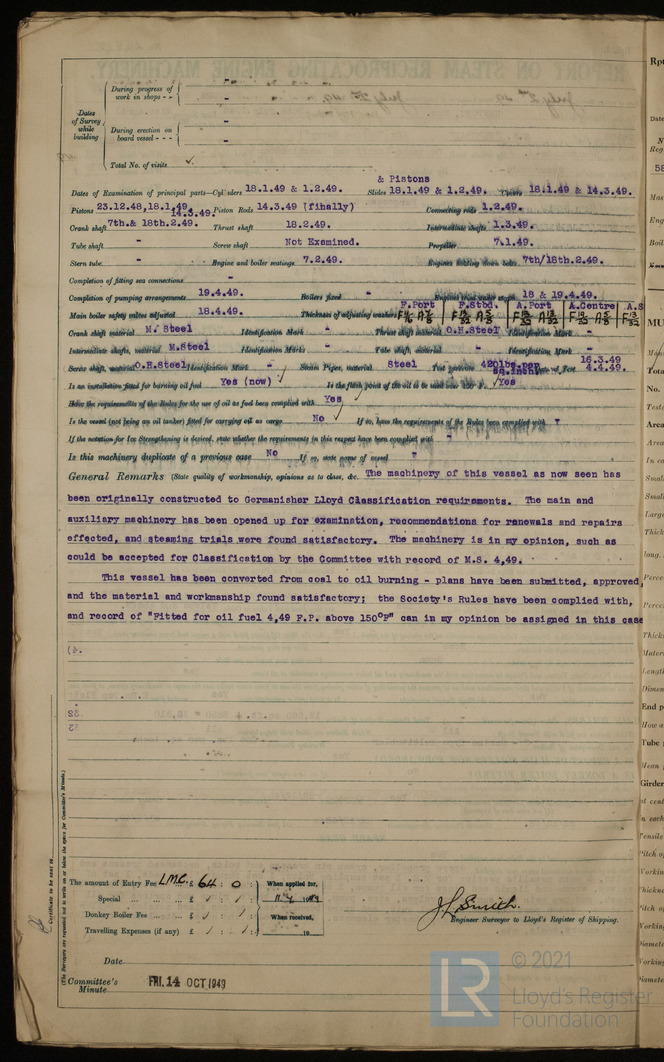 During progress of work in shops - -
Dates of Survey while building
During erection on board vessel - - -
Total No. of visits
& Pistons
Dates of Examination of principal parts—Cylinders 18.1.49 & 1.2.49. Slides 18.1.49 & 1.2.49. Covers 18.1.49 & 14.3.49.
Pistons 23.12.48,18.1.49 14.3.49. Piston Rods 14.3.49 (finally) Connecting rods 1.2.49.
Crank shaft 7th.& 18th.2.49. Thrust shaft 18.2.49. Intermediate shafts 1.3.49.
Tube shaft - Screw shaft Not Examined. Propeller 7.1.49.
Stern tube - Engine and boiler seatings 7.2.49. Engines holding down bolts 7th/18th.2.49.
Completion of fitting sea connections -
Completion of pumping arrangements 19.4.49. Boilers fixed - Engines tried under steam 18 & 19.4.49.
F.Port F.Stbd. A.Port A.Centre A.S
Main boiler safety valves adjusted 18.4.49. Thickness of adjusting washers
Crank shaft material M. Steel Identification Mark - Thrust shaft material O.H.Steel Identification Mark -
Intermediate shafts, material M.Steel Identification Marks - Tube shaft, material - Identification Mark -
Screw shaft, material O.H.Steel Identification Mark - Steam Pipes, material Steel Test pressure 420lbs.per sq.inch. Date of Test 16.3.49 4.4.49.
Is an installation fitted for burning oil fuel Yes (now) Is the flash point of the oil to be used over 150°F. Yes
Have the requirements of the Rules for the use of oil as fuel been complied with Yes
Is the vessel (not being an oil tanker) fitted for carrying oil as cargo No If so, have the requirements of the Rules been complied with -
If the notation for Ice Strengthening is desired, state whether the requirements in this respect have been complied with -
Is this machinery duplicate of a previous case No If so, state name of vessel -
General Remarks (State quality of workmanship, opinions as to class, &c. The machinery of this vessel as now seen has
been originally constructed to Germanisher Lloyd Classification requirements. The main and
auxiliary machinery has been opened up for examination, recommendations for renewals and repairs
effected, and steaming trials were found satisfactory. The machinery is in my opinion, such as
could be accepted for Classification by the Committee with record of M.S. 4,49.
This vessel has been converted from coal to oil burning - plans have been submitted, approved,
and the material and workmanship found satisfactory; the Society's Rules have been complied with,
and record of "Fitted for oil fuel 4,49 F.P. above 150°F" can in my opinion be assigned in this case
Certificate to be sent to
(The Surveyors are requested not to write on or below the space for Committee's Minute.)
The amount of Entry Fee LMC. £ 64 : 0 : When applied for,
Special ... £ : : 19
Donkey Boiler Fee ... £ : : When received,
Travelling Expenses (if any) £ : : 19
J L Smith.
Engineer Surveyor to Lloyd's Register of Shipping.
Date
Committee's Minute FRI. 14 OCT 1949
© 2021
Lloyd's Register
Foundation